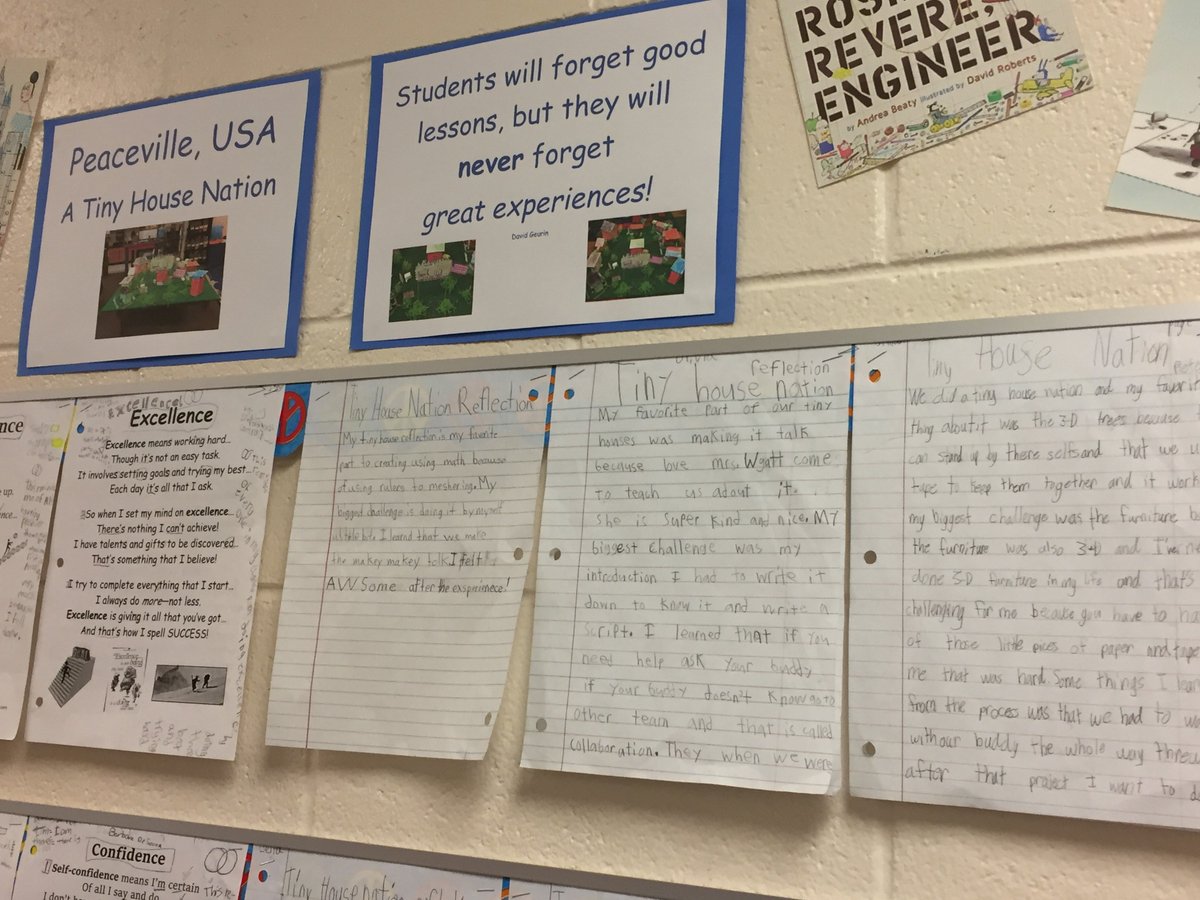 Peaceville, USA
A Tiny House Nation
Students will forget good
lessons, but they will
never forget
great experiences!
David Geurin
ROSIE
REVERE,
ENGINEER
by Andrea Beaty illustrated by David Roberts
Excellence
Excellence means working hard...
Though it's not an easy task.
It involves setting goals and trying my best...
Each day it's all that I ask.
So when I set my mind on excellence...
There's nothing I can't achieve!
I have talents and gifts to be discovered...
That's something that I believe!
I try to complete everything that I start...
I always do more—not less.
Excellence is giving it all that you've got...
And that's how I spell SUCCESS!
Tiny House Nation Reflection
My tiny house reflection is my favorite
part to creating using math because
of using rulers to meshering. My
biggest challenge is doing it by myself
a little bit. I learned that we make
the makey makey talk I felt
AWSome after the exsperinece!
reflection
Tiny house nation
My favorite part of our tiny
houses was making it talk
because love mrs. Wyatt come
to teach us adout it.
she is super kind and nice. MY
biggest challenge was my
introduction I had to write it
down to know it and write a
script. I learned that if you
need help ask your buddy
if your buddy doesn't know go to
other team and that is called
collaboration. They when we were
Tiny House Nation
We did a tiny house nation and my favorit
thing about it was the 3-D trees because
can stand up by there selfs and that we u
tape to keep them together and it work
my biggest challenge was the furniture be
the furniture was also 3-D and I've ne
done 3-D furniture in my life and that's
challenging for me because you have to ha
of those little pices of paper and tape
me that was hard. Some things I lear
from the process was that we had to w
with our buddy the whole way threw
after that project I want to d
Confidence
Self-confidence means I'm certain
Of all I say and do
Tiny House nation